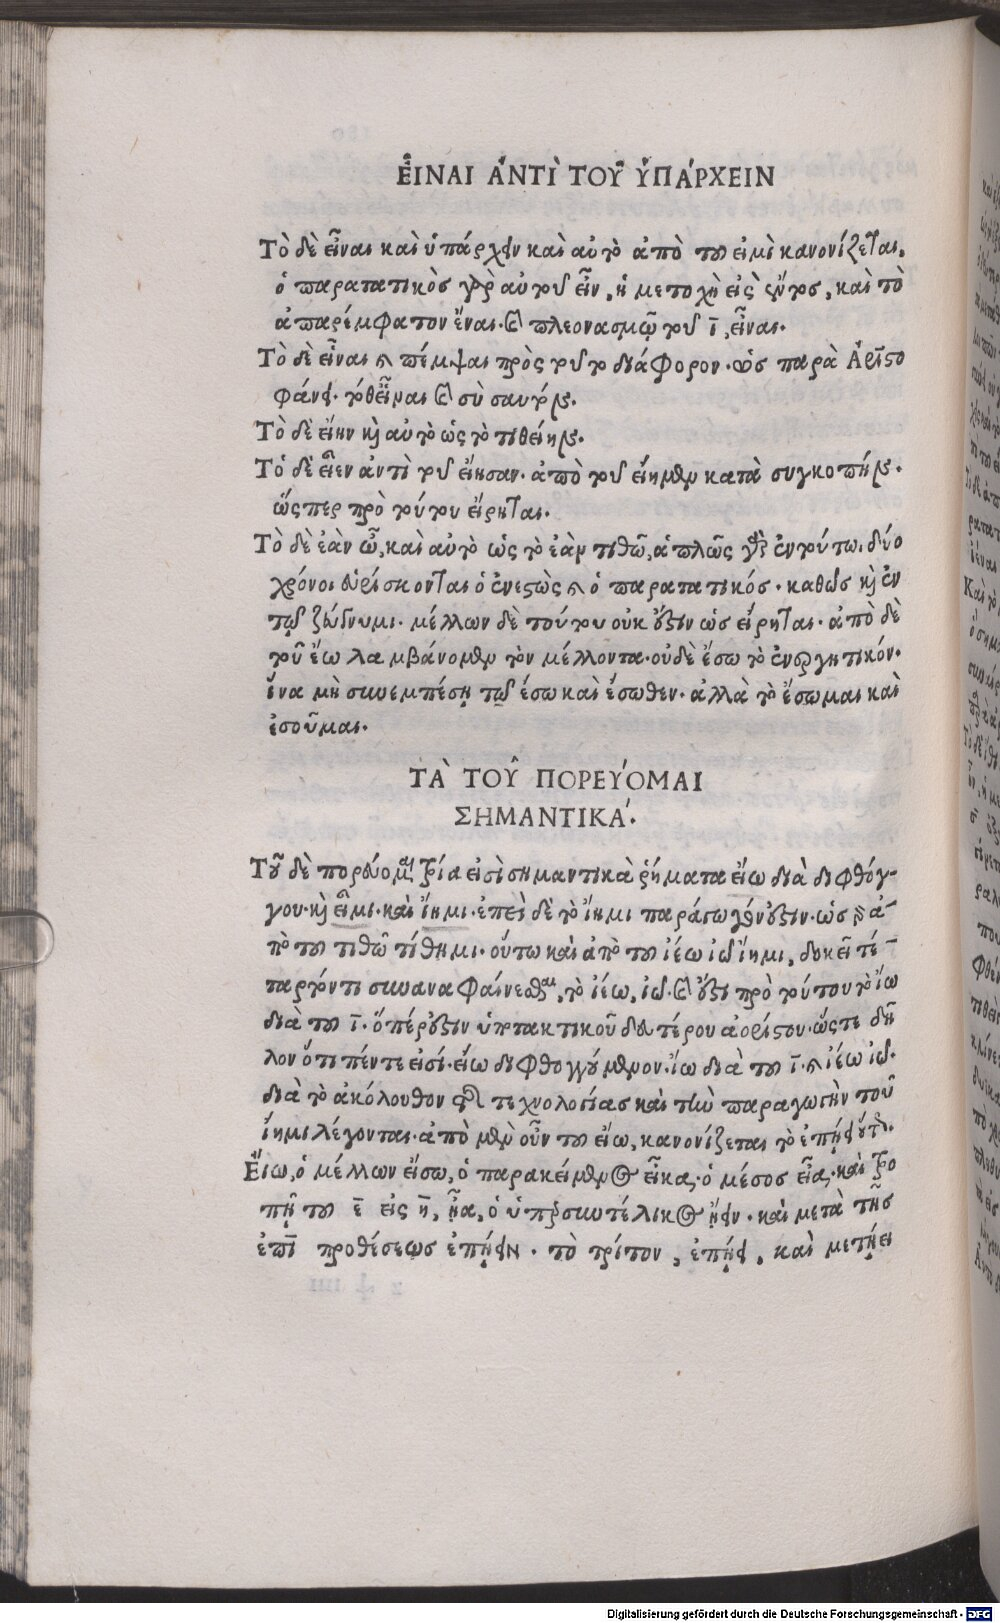 ΕἾΝΑΙ ἈΝΤῚ ΤΟΥ͂ ὙΠΆΡΧΕΙΝ
Τὸ δὲ εἶναι καὶ ὑπάρχειν καὶ αὐτὸ ἀπὸ του εἰμὶ κανονίζεται.
ὁ παρατατικὸς γὰρ αὐτοῦ εἶν, ἡ μετοχὴ εἰς ὄντος, καὶ τὸ
ἀπαρέμφατον ἔναι. καὶ πλεονασμῷ τοῦ ῑ, εἶναι.
Τὸ δὲ εἶναι καὶ πέμψαι πρὸς τοῦτο διάφορον. ὡς παρὰ Ἀριστο
φάνει. τόθεῖμαι καὶ σὺ σαυτόν.
Τὸ δὲ εἴην καὶ αὐτὸ ὡς τὸ τιθείην.
Τὸ δὲ εἶεν ἀντὶ τοῦ εἴησαν. ἀπὸ τοῦ εἴημεν κατὰ συγκοπήν.
ὥσπερ πρὸ τούτου εἴρηται.
Τὸ δὲ ἐὰν ὦ, καὶ αὐτὸ ὡς τὸ ἐὰν τιθῶ, ἁπλῶς γὰρ ἐν τούτωι δύο
χρόνοι εὑρίσκονται ὁ ἐνεστὼς καὶ ὁ παρατατικός. καθὼς καὶ ἐν
τῷ ζώννυμι. μέλλων δὲ τούτου οὐκ ἔστιν ὡς εἴρηται. ἀπὸ δὲ
τοῦ ἔω λαμβάνομεν τὸν μέλλοντα. οὐδὲ ἔσω τὸ ἐνεργητικόν.
ἵνα μὴ συνεμπέσῃ τῷ ἔσω καὶ ἔσωθεν. ἀλλὰ τὸ ἔσωμαι καὶ
ἐσοῦμαι.
ΤᾺ ΤΟΥ͂ ΠΟΡΕΎΟΜΑΙ
ΣΗΜΑΝΤΙΚΆ.
Τοῦ δὲ πορεύομαι τρία εἰσὶ σημαντικὰ ῥήματα εἴω διὰ διφθόγ-
γου. καὶ εἶμι. καὶ ἴημι. ἐπεὶ δὲ τὸ ἴημι παράγωγόν ἐστιν. ὡς γὰρ ἀ-
πὸ του τιθῶ τίθημι. οὕτω καὶ ἀπὸ του ἰέω ἰῶ ἴημι, δοκεῖ τέ-
ταρτόν τι συναναφαίνεσθαι, τὸ ἰέω, ἰῶ. καὶ ἔστι πρὸ τούτου τὸ ἴω
διὰ του ῑ. ὅπέρ ἐστιν ὑποτακτικοῦ δευτέρου ἀορίστου. ὥστε δῆ
λον ὅτι πέντε εἰσί. εἴω διφθογγούμενον. ἴω διὰ του ῑ. καὶ ἰέω ἰῶ.
διὰ τὸ ἀκόλουθον τῆς τεχνολογίας καὶ τὴν παραγωγὴν τοῦ
ἴημι λέγονται. ἀπὸ μὲν οὖν του εἴω, κανονίζεται τὸ ἐπῄει οὕτως.
Εἴω, ὁ μέλλων εἴσω, ὁ παρακείμενος εἶκα, ὁ μέσος εἶα, καὶ τρο
πῇ του ε̄ εἰς η̄, ᾖα, ὁ ὑπερσυντέλικος ᾔειν. καὶ μετὰ τῆς
ἐπὶ προθέσεως ἐπῄειν. τὸ τρίτον, ἐπῄει, καὶ μετῄει
Digitalisierung gefördert durch die Deutsche Forschungsgemeinschaft - DFG